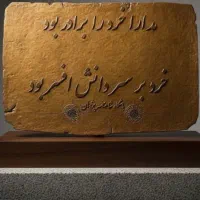 مدارا خرد را برادر بود
خرد بر سر دانش افسر بود